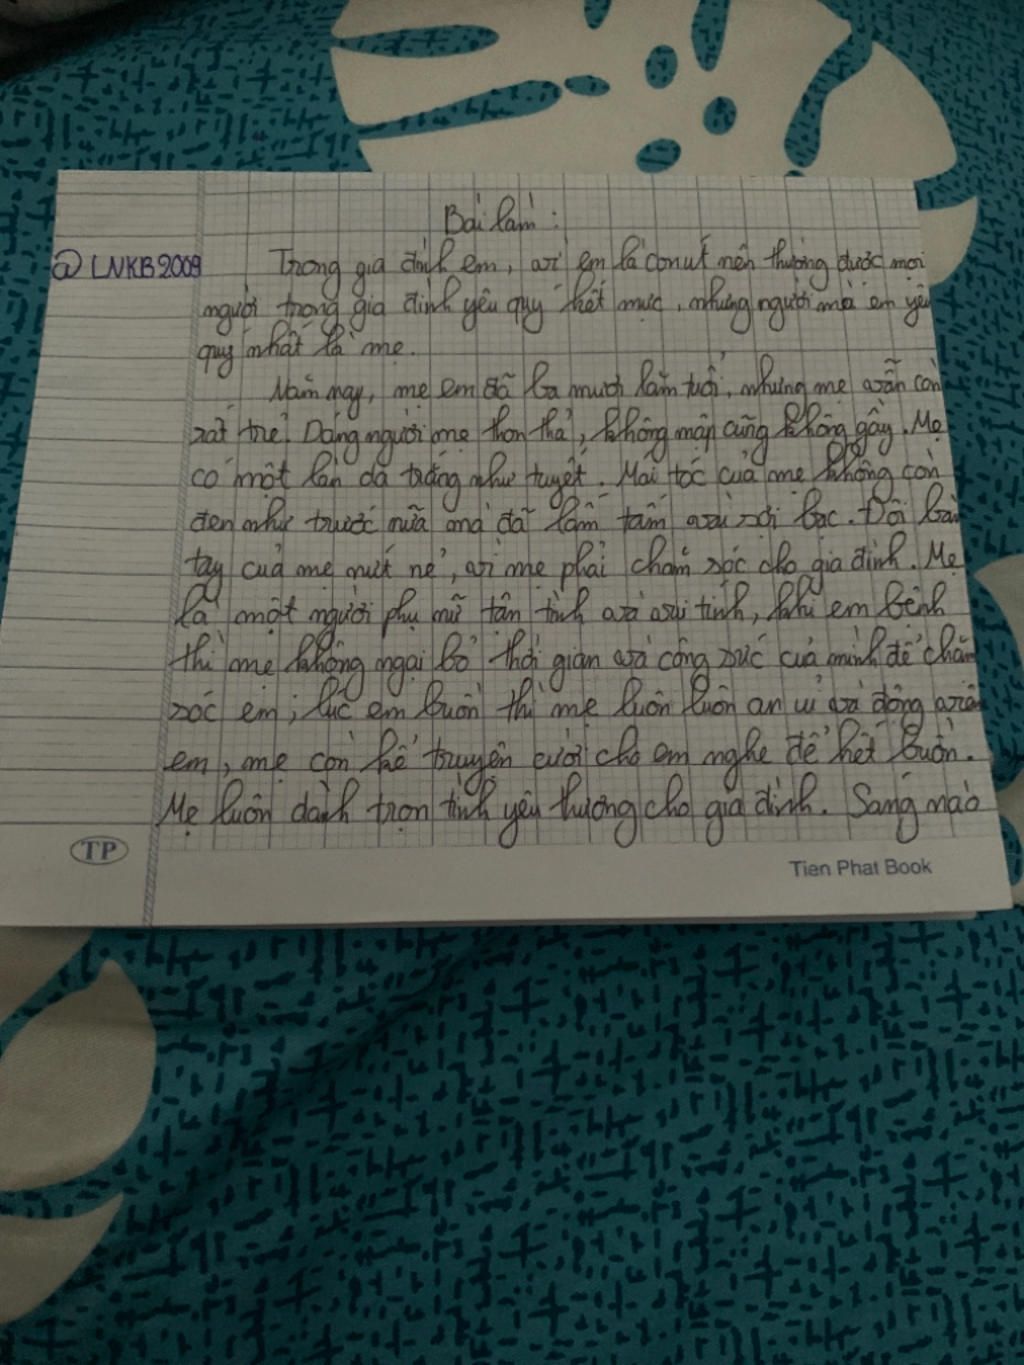 Bài làm:
@ LNKB2009
Trong gia đình em, vì em là con út nên thường được mọi
người trong gia đình yêu quý hết mực, nhưng người mà em yêu
quý nhất là mẹ.
Năm nay, mẹ em đã ba mươi lăm tuổi, nhưng mẹ vẫn còn
rất trẻ. Dáng người mẹ thon thả, không mập cũng không gầy. Mẹ
có một làn da trắng như tuyết. Mái tóc của mẹ không còn
đen như trước nữa mà đã lấm tấm vài sợi bạc. Đôi bàn
tay của mẹ nứt nẻ, vì mẹ phải chăm sóc cho gia đình. Mẹ
là một người phụ nữ tận tình và vui tính, khi em bệnh
thì mẹ không ngại bỏ thời gian và công sức của mình để chăm
sóc em; lúc em buồn thì mẹ luôn luôn an ủi và động viên
em, mẹ còn kể truyện cười cho em nghe để hết buồn.
Mẹ luôn dành trọn tình yêu thương cho gia đình. Sáng nào
TP
Tien Phat Book